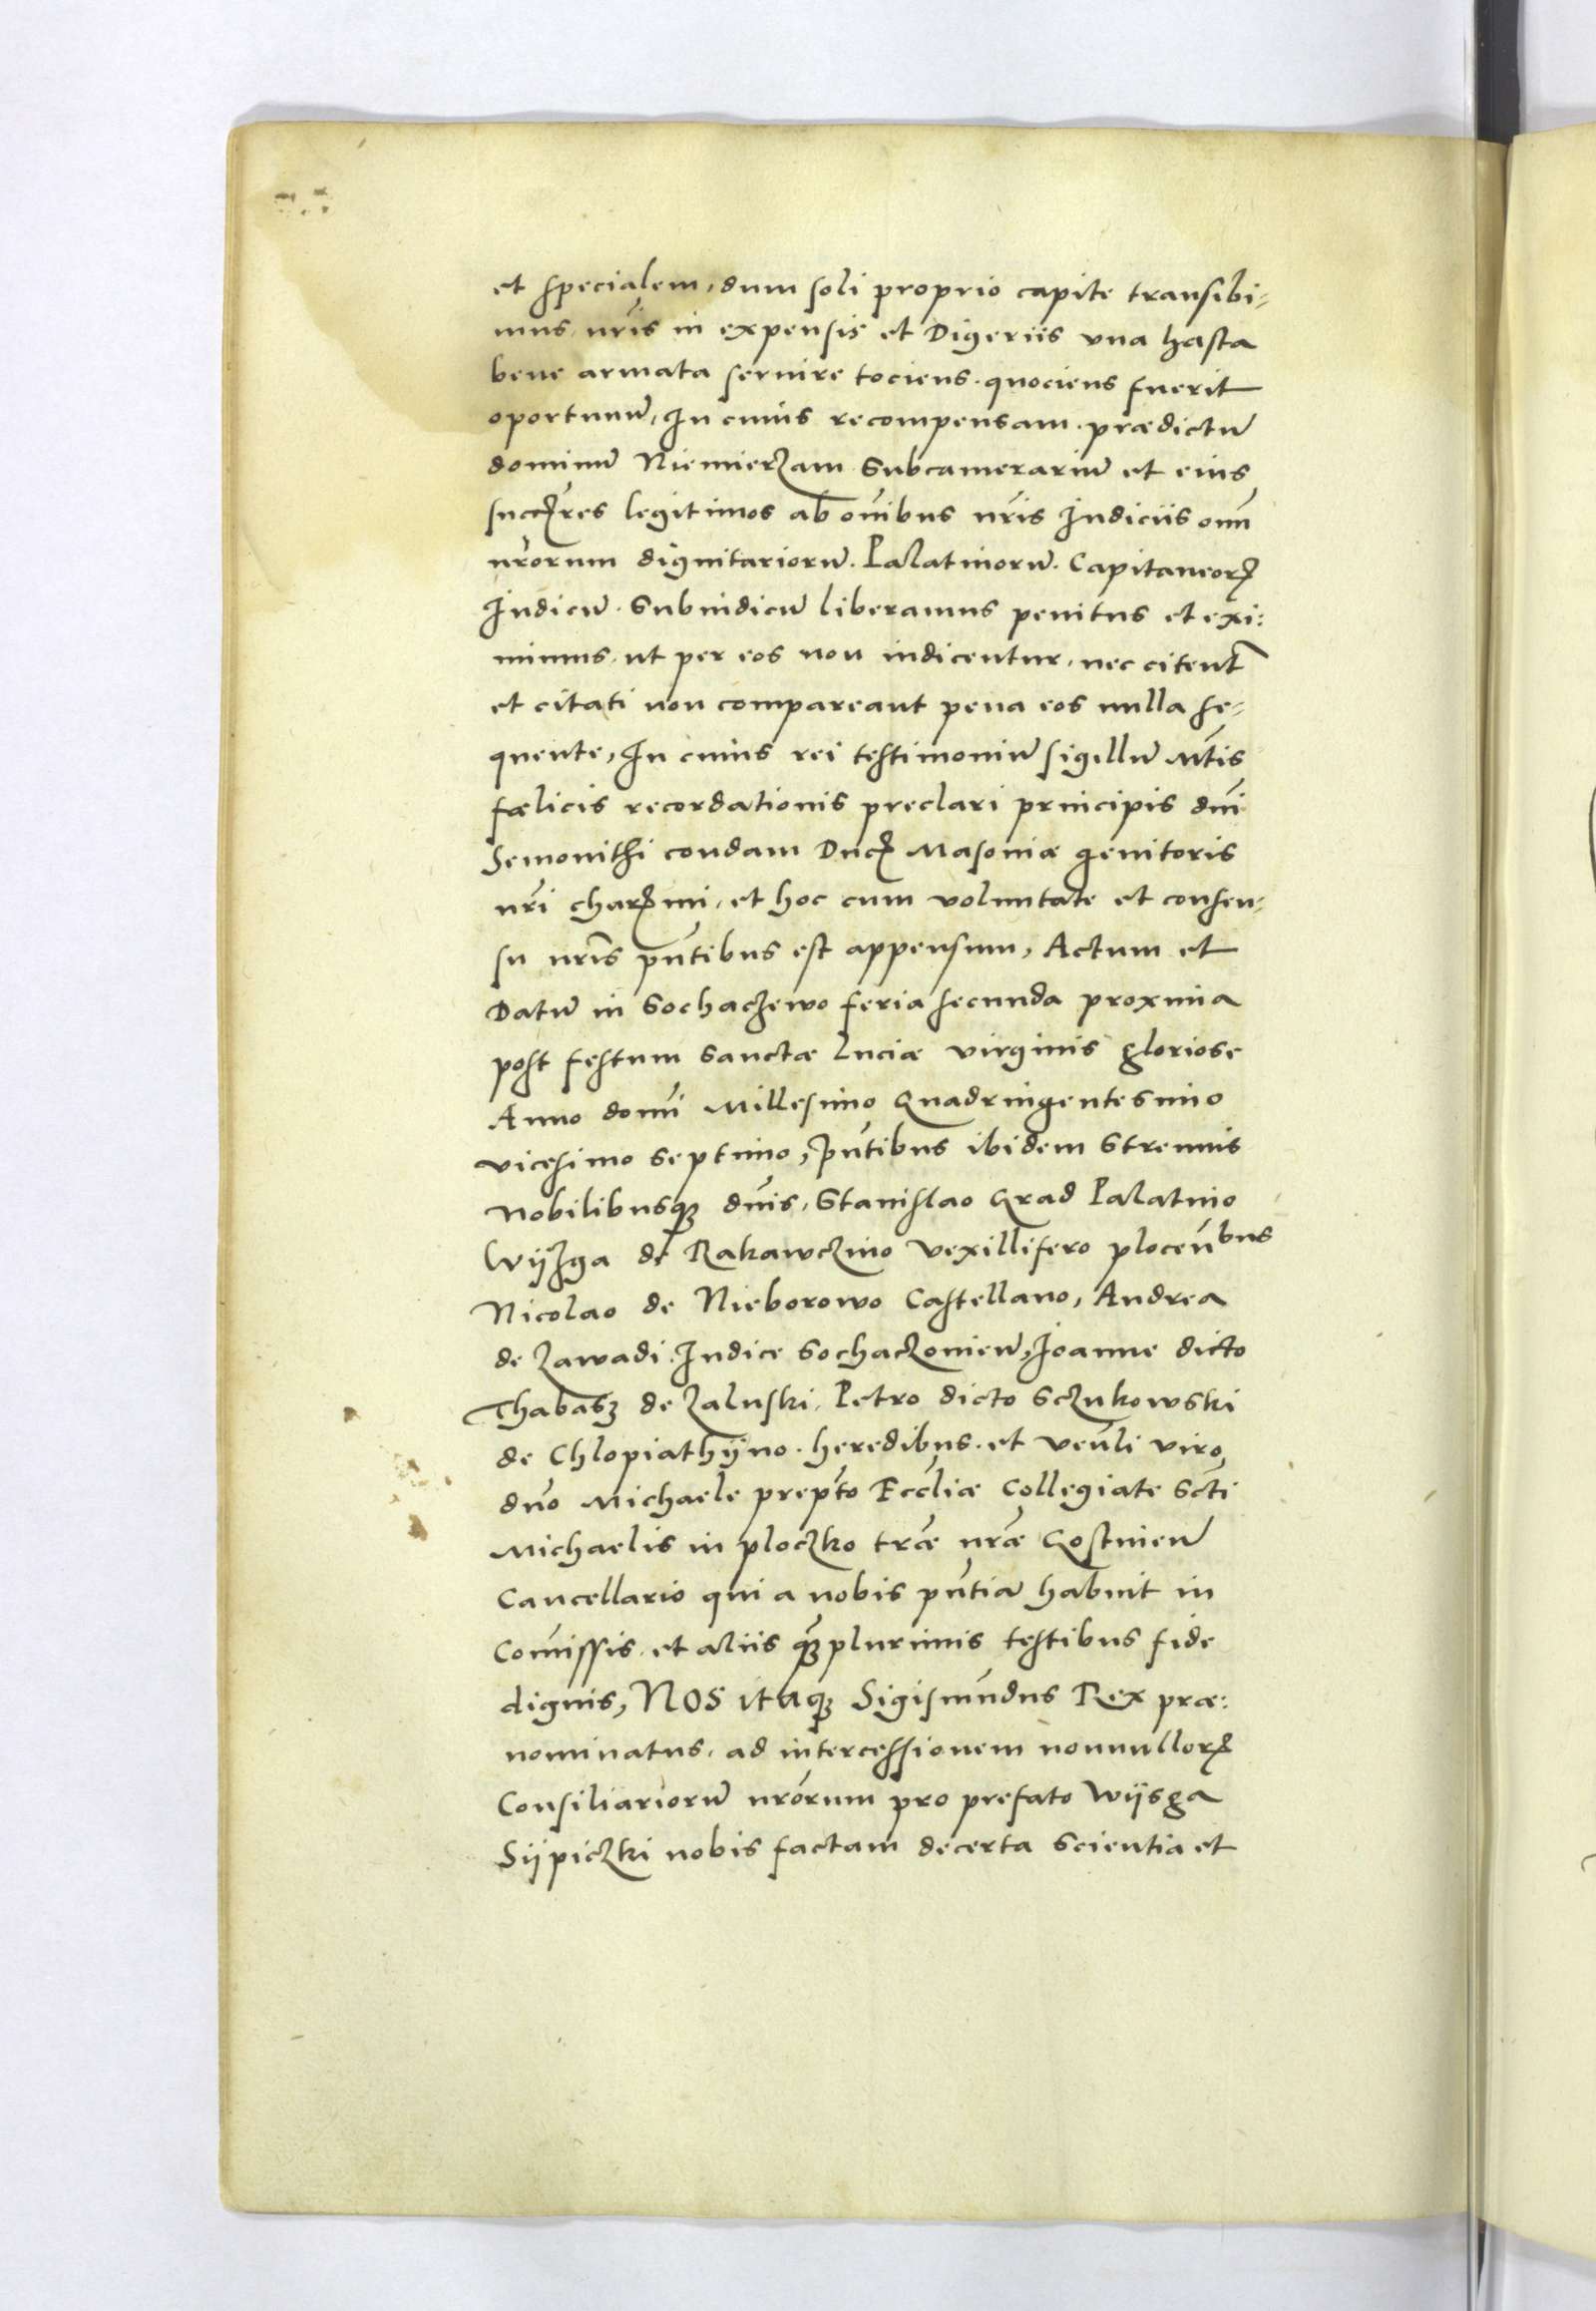 et specialem, dum soli proprio capite transibi-
mus, nr̃is in expensis et Digeriis vna hasta
bene armata seruire tociens. quociens fuerit
oportunũ, In cuius recompensam. prædictũ
dominũ Niemierzam Subcamerariũ et eius
succꝭres legitimos ab oĩbus nr̃is Iudiciis oim̃
nr̃orum dignitariorũ. Palatinorũ. Capitaneorꝝ
Iudicũ. Subiudicũ liberamus penitus et exi:
mimus. ut per eos non iudicentur, nec citent̃
et citati non compareant pena eos nulla se-
quente, In cuius rei testimoniũ sigillũ Mt̃is
fælicis recordationis preclari principis dñi
Semonithi condam Ducꝭ Masoniæ genitoris
nr̃i charꝭmi, et hoc cum voluntate et consen-
su nr̃is pñtibus est appensum, Actum et
Datũ in Sochaczewo feria secunda proxima
post festum Sanctæ Luciæ virginis gloriose
Anno domĩ Millesimo Quadringentesimo
vicesimo Septimo, pñtibus ibidem Strenuis
Nobilibusqꝫ dñis, Stanislao Grad Palatino
Wÿzga de Rakawczino Vexillifero ploceñbus
Nicolao de Nieborowo Castellano, Andrea
de Zawadi Iudice Sochaczonieñ, Joanne dicto
Thabasz de Zaluski, Petro dicto Sczukowski
de Chlopiathÿno. heredibus. et veñli viro,
dño Michaele prepto Eccliæ Collegiate Scti
Michaelis in ploczko tr̃æ nr̃æ Gostnieñ
Cancellario qui a nobis pñtia habuit in
Com̃issis, et aliis qꝫplurimis testibus fide
dignis, NOS itaqꝫ Sigismũdus Rex præ:
nominatus, ad intercessionem nonnullorꝝ
Consiliariorũ nr̃orum pro prefato Wÿsga
Sÿpiczki nobis factam decerta scientia et